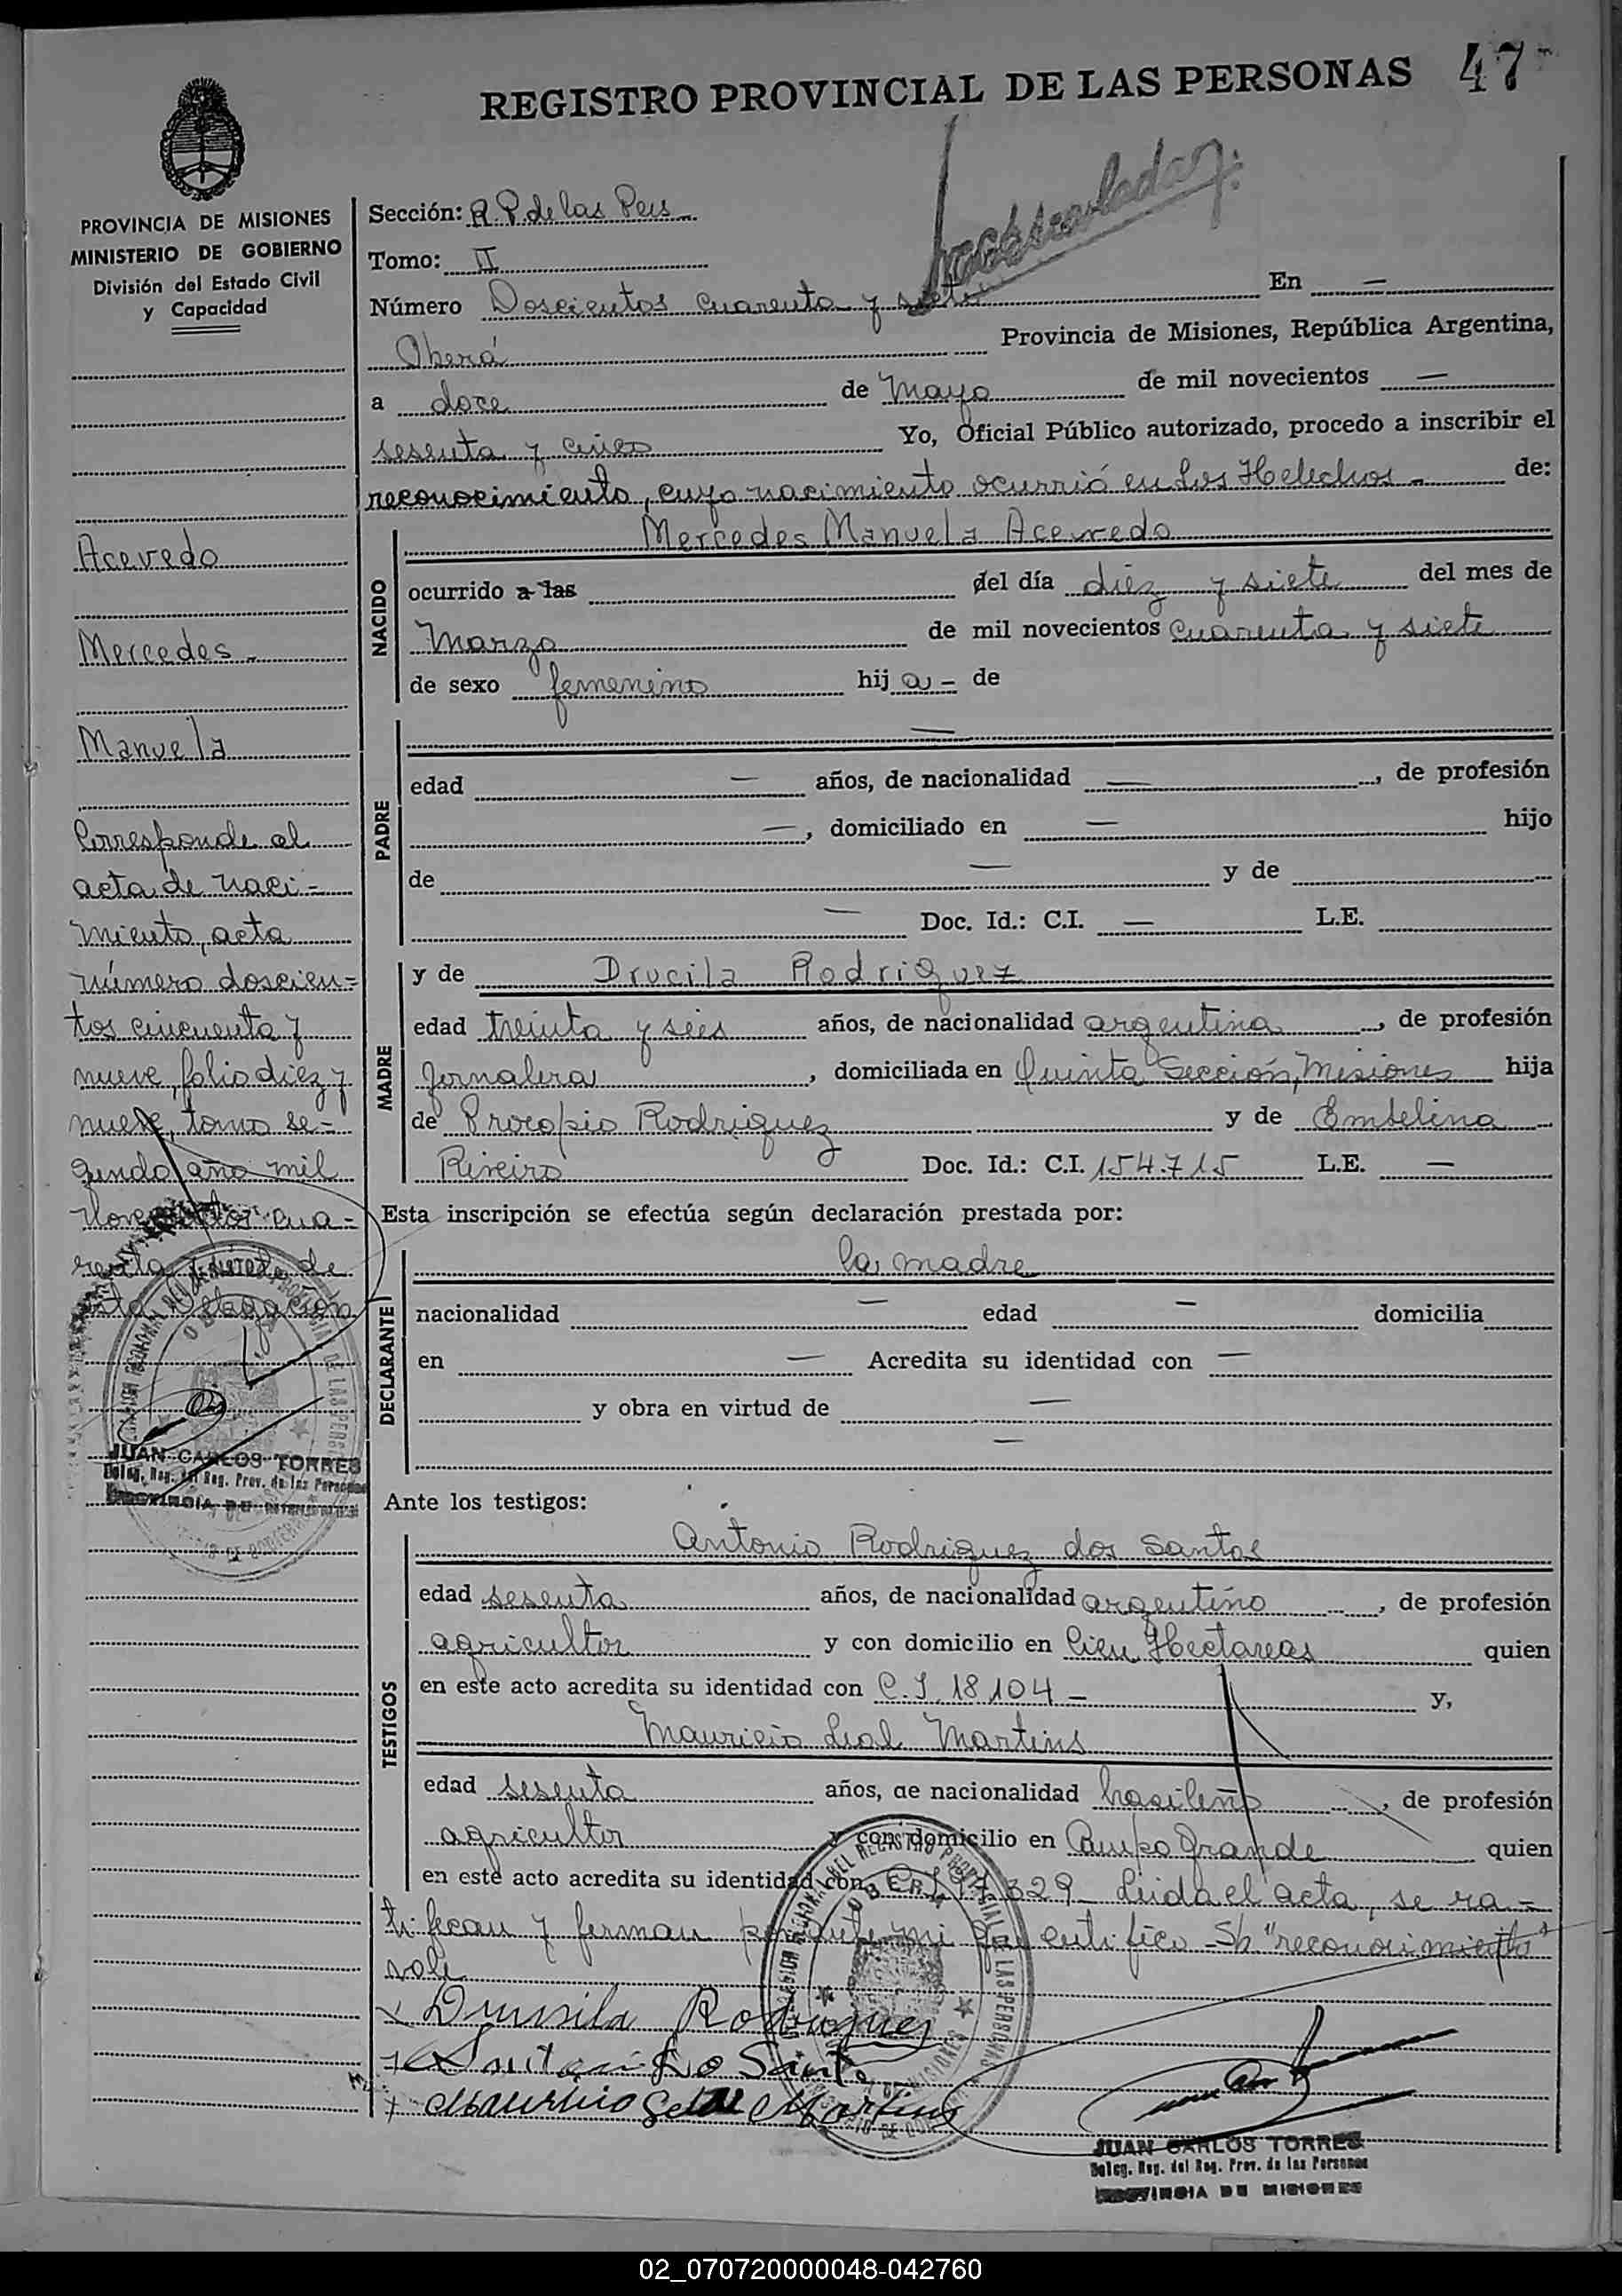 REGISTRO PROVINCIAL DE LAS PERSONAS 47
PROVINCIA DE MISIONES
MINISTERIO DE GOBIERNO
División del Estado Civil
y Capacidad
Sección: R. P. de las Pers
Tomo: II
Número Doscientos cuarenta y siete En —
Oberá Provincia de Misiones, República Argentina,
a doce de Mayo de mil novecientos —
sesenta y cinco Yo, Oficial Público autorizado, procedo a inscribir el
reconocimiento, cuyo nacimiento ocurrió en Los Helechos - de:
Acevedo
Mercedes -
Manuela
Corresponde al
acta de naci-
miento, acta
número doscien-
tos cincuenta y
nueve, folio diez y
nueve, tomo se-
gundo año mil
novecientos cua-
renta y siete de
esta Delegación
JUAN CARLOS TORRES
Deleg. Reg. del Reg. Prov. de las Personas
PROVINCIA DE MISIONES
NACIDO
Mercedes Manuela Acevedo
ocurrido a las del día diez y siete del mes de
Marzo de mil novecientos cuarenta y siete
de sexo femenino hij a - de
PADRE
—
edad — años, de nacionalidad —, de profesión
—, domiciliado en — hijo
de — y de
— Doc. Id.: C.I. — L.E.
MADRE
y de Drucila Rodriguez
edad treinta y seis años, de nacionalidad argentina, de profesión
Jornalera, domiciliada en Quinta Sección, Misiones hija
de Procopio Rodriguez y de Embelina
Riveiro Doc. Id.: C.I. 154.715 L.E. —
Esta inscripción se efectúa según declaración prestada por:
DECLARANTE
la madre
nacionalidad — edad — domicilia
en — Acredita su identidad con —
y obra en virtud de —
—
Ante los testigos:
TESTIGOS
Antonio Rodriguez dos Santos
edad sesenta años, de nacionalidad argentino, de profesión
agricultor y con domicilio en Cien Hectareas quien
en este acto acredita su identidad con C.I. 18.104 - y,
Mauricio Leal Martins
edad sesenta años, de nacionalidad brasileño, de profesión
agricultor y con domicilio en Campo Grande quien
en este acto acredita su identidad con C.I. 329 - Leida el acta, se ra-
tifican y firman por ante mi que certifico - Sb. "reconocimiento"
vale
x Drusila Rodriguez
Santo
Mauricio Martins
JUAN CARLOS TORRES
Deleg. Reg. del Reg. Prov. de las Personas
PROVINCIA DE MISIONES
02_070720000048-042760